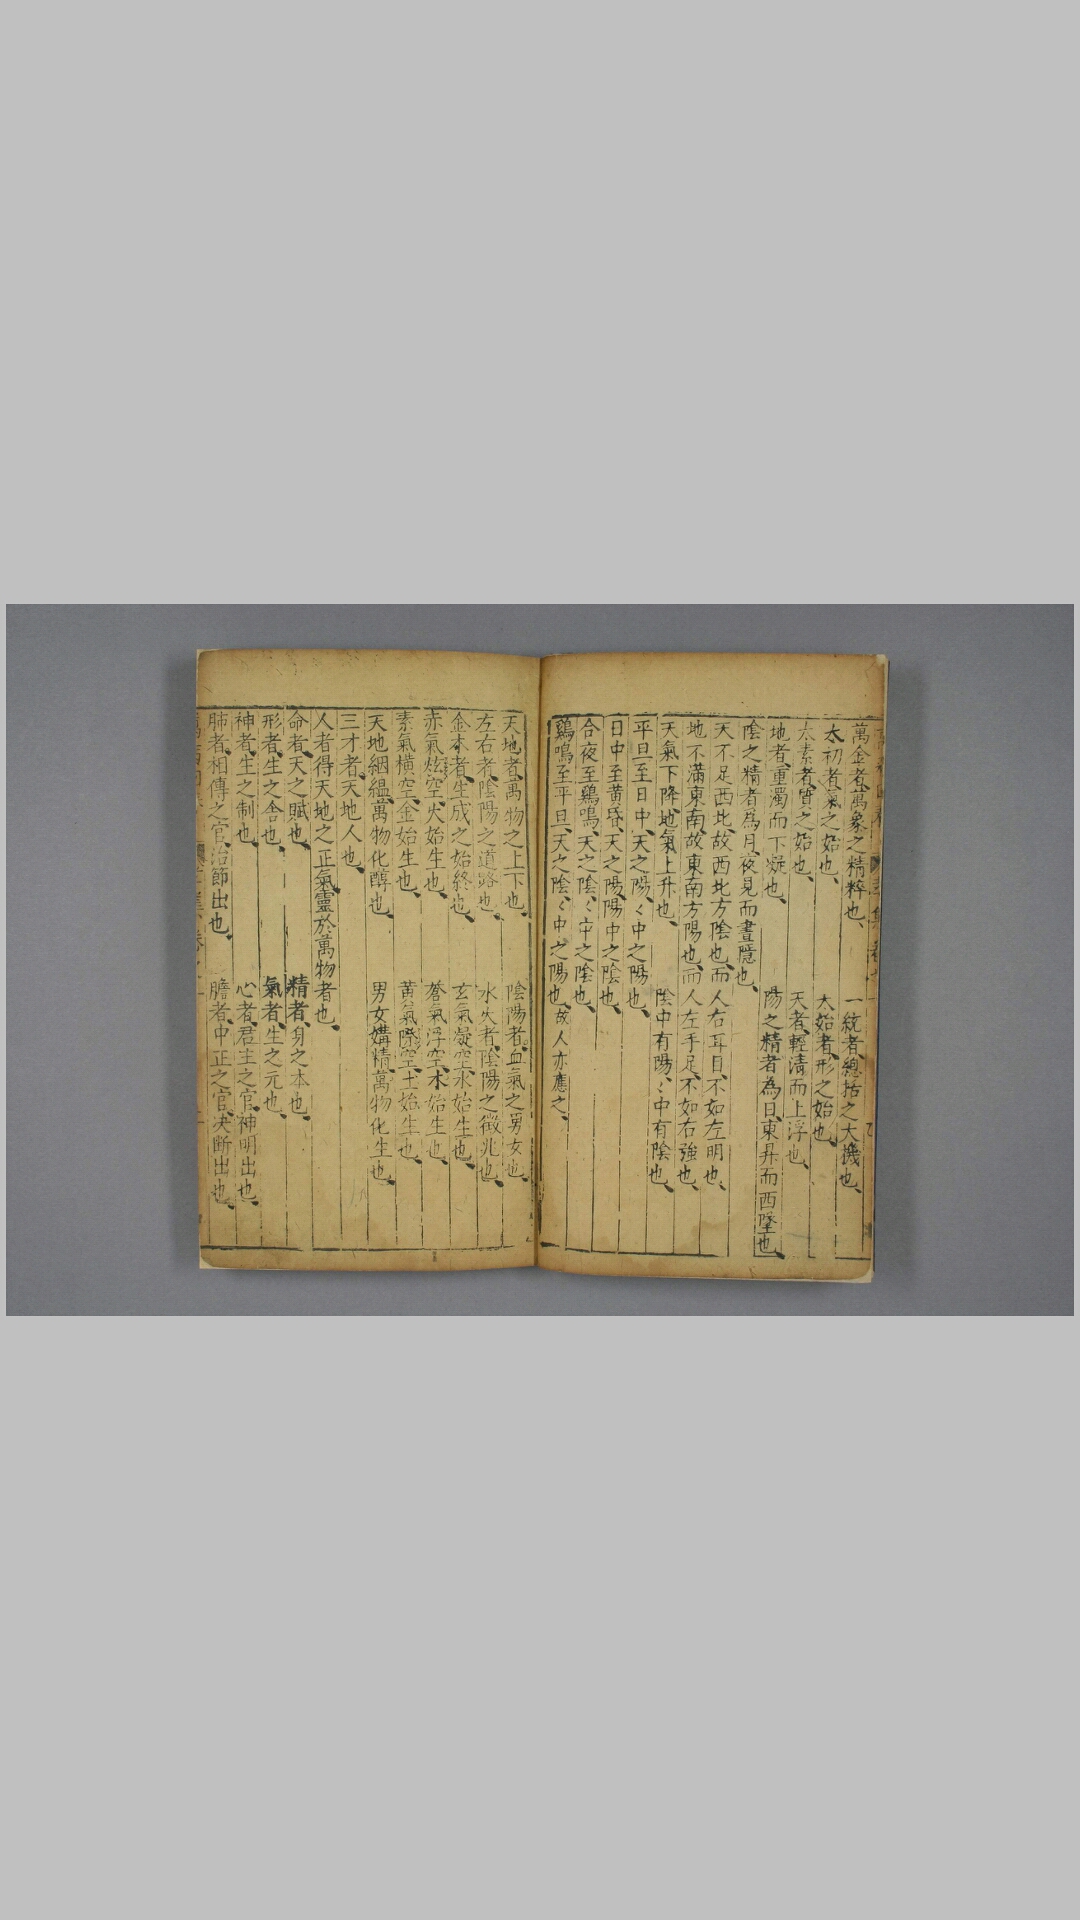 萬金者、萬象之精粹也、 一統者、總括之大機也、
太初者、氣之始也、 太始者、形之始也、
太素者、質之始也、 天者、輕淸而上浮也、
地者、重濁而下凝也、 陽之精者為日、東昇而西墜也、
陰之精者為月、夜見而晝隱也、
天不足西北、故西北方陰也、而人右耳目、不如左明也、
地不滿東南、故東南方陽也、而人左手足、不如右強也、
天氣下降、地氣上升也、 陰中有陽、〻中有陰也、
平旦至日中、天之陽、〻中之陽也、
日中至黄昏、天之陽、陽中之陰也、
合夜至鷄鳴、天之陰、〻中之陰也、
鷄鳴至平旦、天之陰、〻中之陽也、故人亦應之、
天地者、萬物之上下也、 陰陽者、血氣之男女也、
左右者、陰陽之道路也、 水火者、陰陽之徵兆也、
金木者、生成之始終也、 玄氣凝空、水始生也、
赤氣炫空、火始生也、 蒼氣浮空、木始生也、
素氣橫空、金始生也、 黄氣際空、土始生也、
天地絪緼、萬物化醇也、 男女媾精、萬物化生也、
三才者、天地人也、
人者、得天地之正氣、靈於萬物者也、
命者、天之賦也、 精者、身之本也、
形者、生之舍也、 氣者、生之元也、
神者、生之制也、 心者、君主之官、神明出也、
肺者、相傳之官、治節出也、 膽者、中正之官、决断出也、